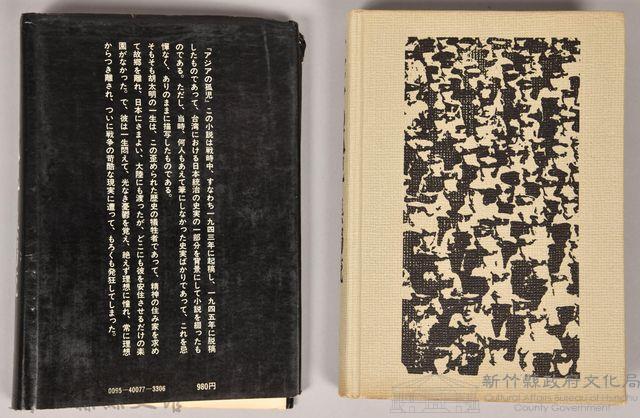 『アジアの孤児』この小説は戦時中、すなわち一九四三年に起稿し、一九四五年に脱稿
したものであって、台湾における日本統治の史実の一部分を背景にして小説を綴ったも
のである。ただし、当時、何人もあえて筆にしなかった史実ばかりであって、これを忌
憚なく、ありのままに描写したものである。
そもそも胡太明の一生は、この歪められた歴史の犠牲者であって、精神の住み家を求め
て故郷を離れ、日本にさまよい、大陸にも渡ったが、どこにも彼を安住させるだけの楽
園がなかった。で、彼は一生悶えて、光なき憂鬱を覚え、絶えず理想に憧れ、常に理想
からつき離され、ついに戦争の苛酷な現実に遭って、もろくも発狂してしまった。
0095-40077-3306
980円
新竹縣政府文化局
Cultural Affairs Bureau of Hsinchu
County Government